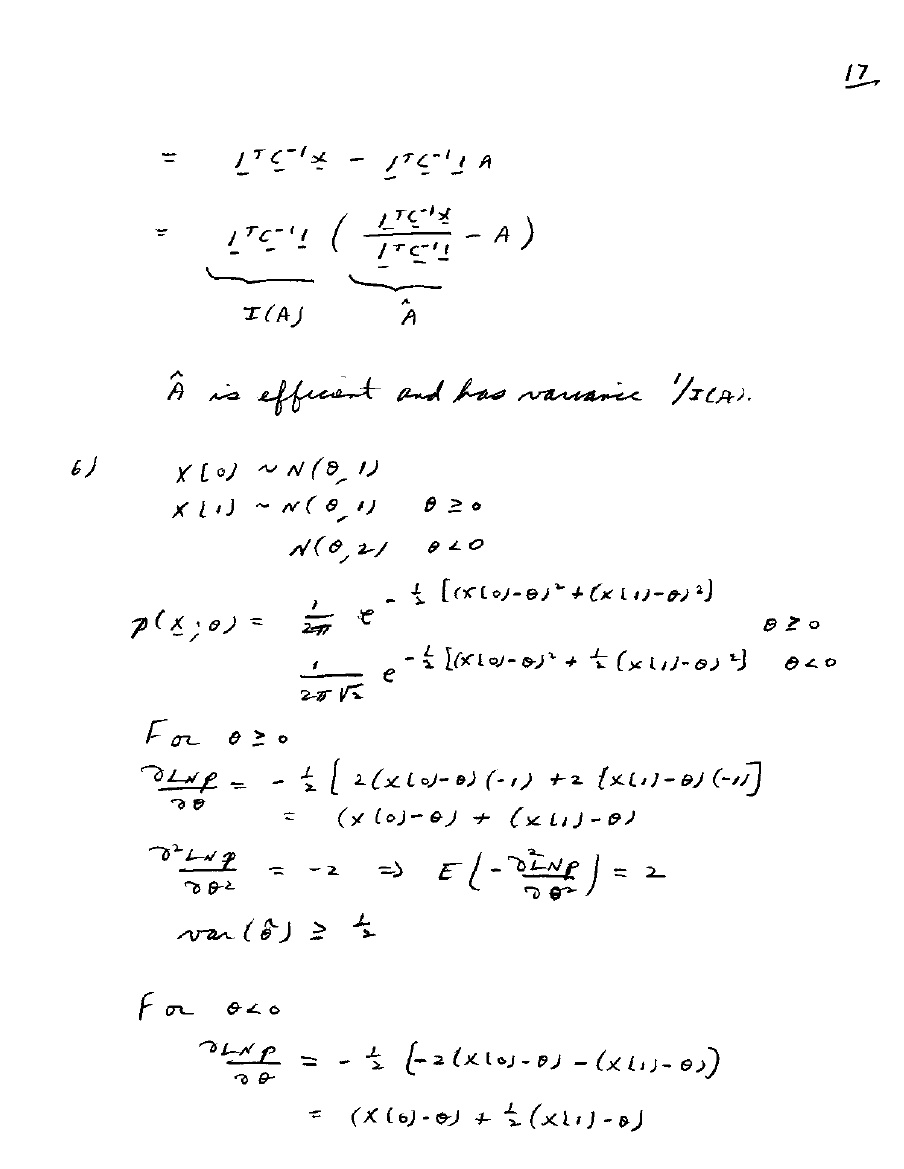 17
= 1ᵀC⁻¹x − 1ᵀC⁻¹1 A
= 1ᵀC⁻¹1 ( 1ᵀC⁻¹x / 1ᵀC⁻¹1 − A )
I(A) Â
Â is efficient and has variance 1/I(A).
6) X[0] ~ N(θ, 1)
X[1] ~ N(θ, 1) θ ≥ 0
N(θ, 2) θ < 0
p(x; θ) = 1/2π e^{-1/2 [(x[0]-θ)² + (x[1]-θ)²]} θ ≥ 0
1/(2π√2) e^{-1/2 [(x[0]-θ)² + 1/2 (x[1]-θ)²]} θ < 0
For θ ≥ 0
∂LNp/∂θ = -1/2 [2(x[0]-θ)(-1) + 2(x[1]-θ)(-1)]
= (x[0]-θ) + (x[1]-θ)
∂²LNp/∂θ² = -2 ⇒ E(-∂²LNp/∂θ²) = 2
var(θ̂) ≥ 1/2
For θ < 0
∂LNp/∂θ = -1/2 (-2(x[0]-θ) - (x[1]-θ))
= (x[0]-θ) + 1/2(x[1]-θ)